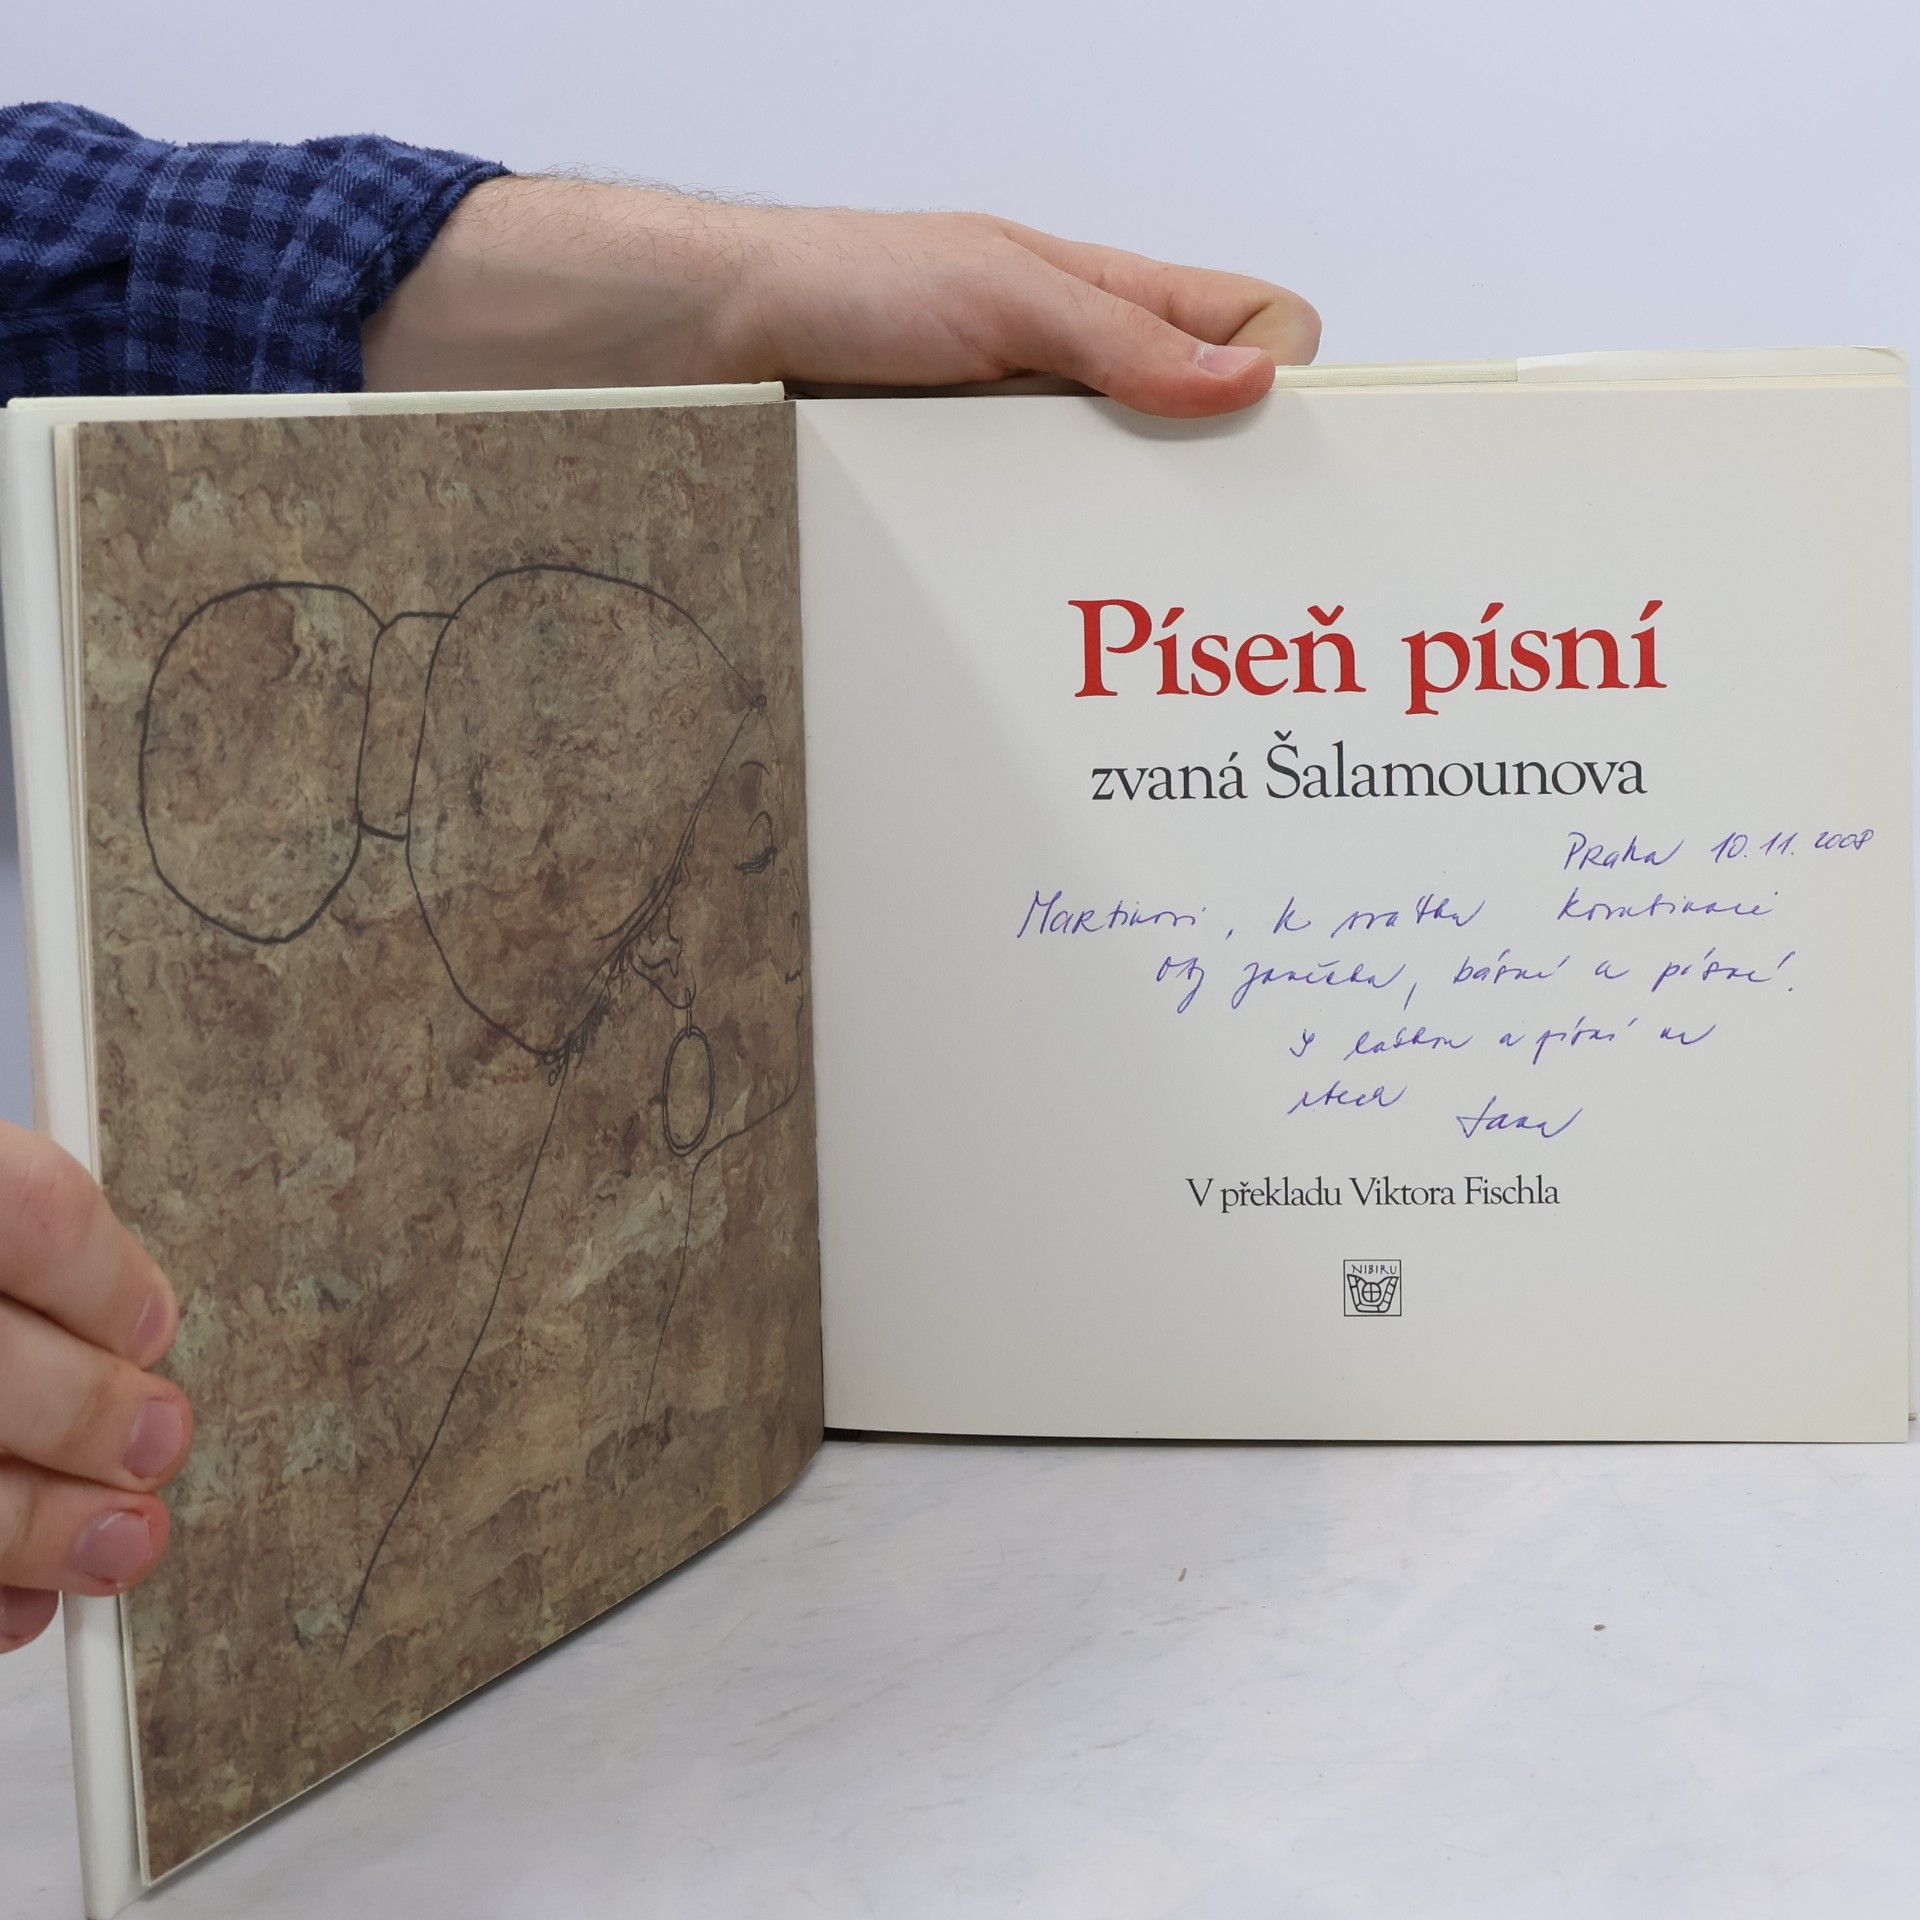 Píseň písní
zvaná Šalamounova
Praha 10.11.2008
Martinovi, k svátku kombinaci
básní a písní!
S láskou a písní na
rtech Jana
V překladu Viktora Fischla
NIBIRU